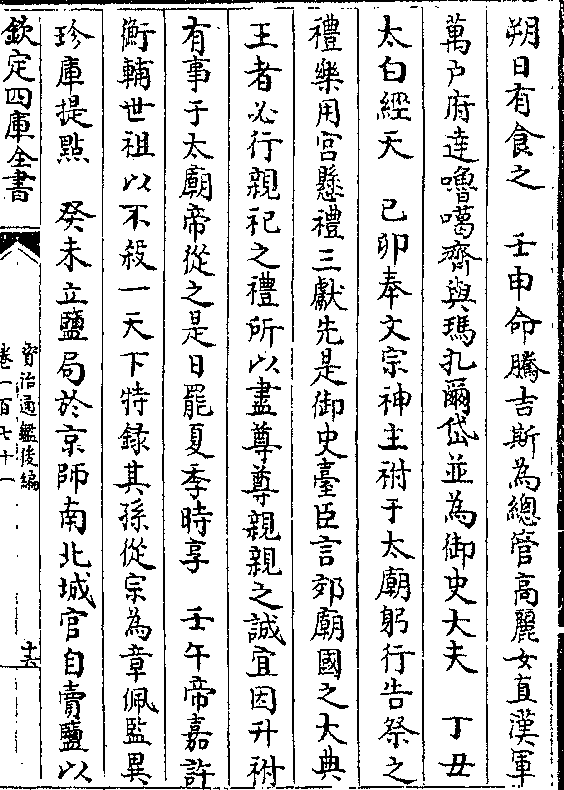 朔日有食之　壬申命騰吉斯為總管高麗女直漢軍
萬户府達嚕噶齊與瑪扎爾岱並為御史大夫　丁丑
太白經天　己卯奉文宗神主祔于太廟躬行告祭之
禮樂用宫懸禮三獻先是御史臺臣言郊廟國之大典
王者必行親祀之禮所以盡尊尊親親之誠宜因升祔
有事于太廟帝從之是日罷夏季時享　壬午帝嘉許
衡輔世祖以不殺一天下特録其孫從宗為章佩監異
珍庫提點　癸未立鹽局於京師南北城官自賣鹽以
欽定四庫全書
資治通鑑後編
卷一百七十一
十六